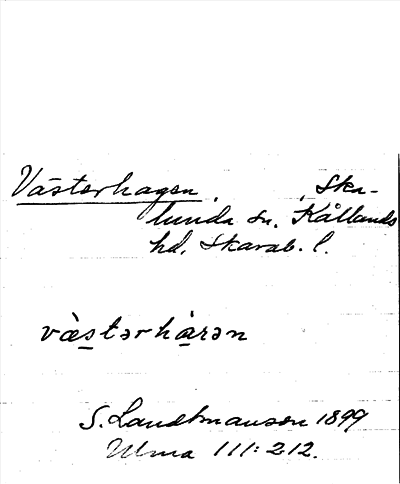 Västerhagen. Ska-
lunda sn. Kållands
hd, Skarab. l.
vàs̲tərhàrən
S. Landtmanson 1899
Ulma 111:212.